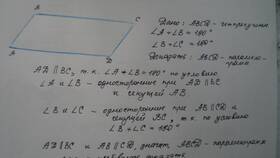 B
C
A
D
Дано: ABCD - четырехуг.
∠A + ∠B = 180°
∠B + ∠C = 180°
Доказать: ABCD - паралело-
грамм
AD ∥ BC, т.к. ∠A + ∠B = 180° по условию
∠A и ∠B - односторонние при AD ∥ BC
и секущей AB
∠B и ∠C - односторонние при AB ∥ CD и
секущей BC, т.к. по условию
∠B + ∠C = 180°
AD ∥ BC и AB ∥ CD, значит, ABCD - параллелограмм